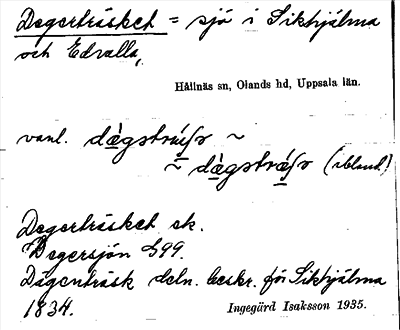 Degerträsket = sjö i Sikhjälma
och Edvalla,
Hållnäs sn, Olands hd, Uppsala län.
vanl. dä̀gsträ́ſʋ ~
~ dä̀gstrǽſʋ (ibland)
Degerträsket ek.
Degersjön G99.
Dägerträsk deln. beskr. för Sikhjälma
1834.
Ingegärd Isaksson 1935.